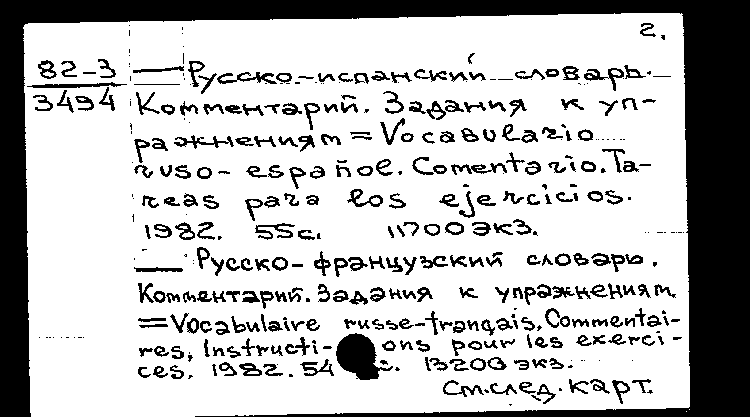 2.
82-3 — Русско-испанский словарь.
3494 Комментарий. Задания к уп-
ражнениям = Vocabulario
ruso-español. Comentario. Ta-
reas para los ejercicios.
1982. 55с. 11700 экз.
— Русско-французский словарь.
Комментарий. Задания к упражнениям.
= Vocabulaire russe-français. Commentai-
res, Instructi- ons pour les exerci-
ces. 1982. 54 с. 13200 экз.
См. след. карт.